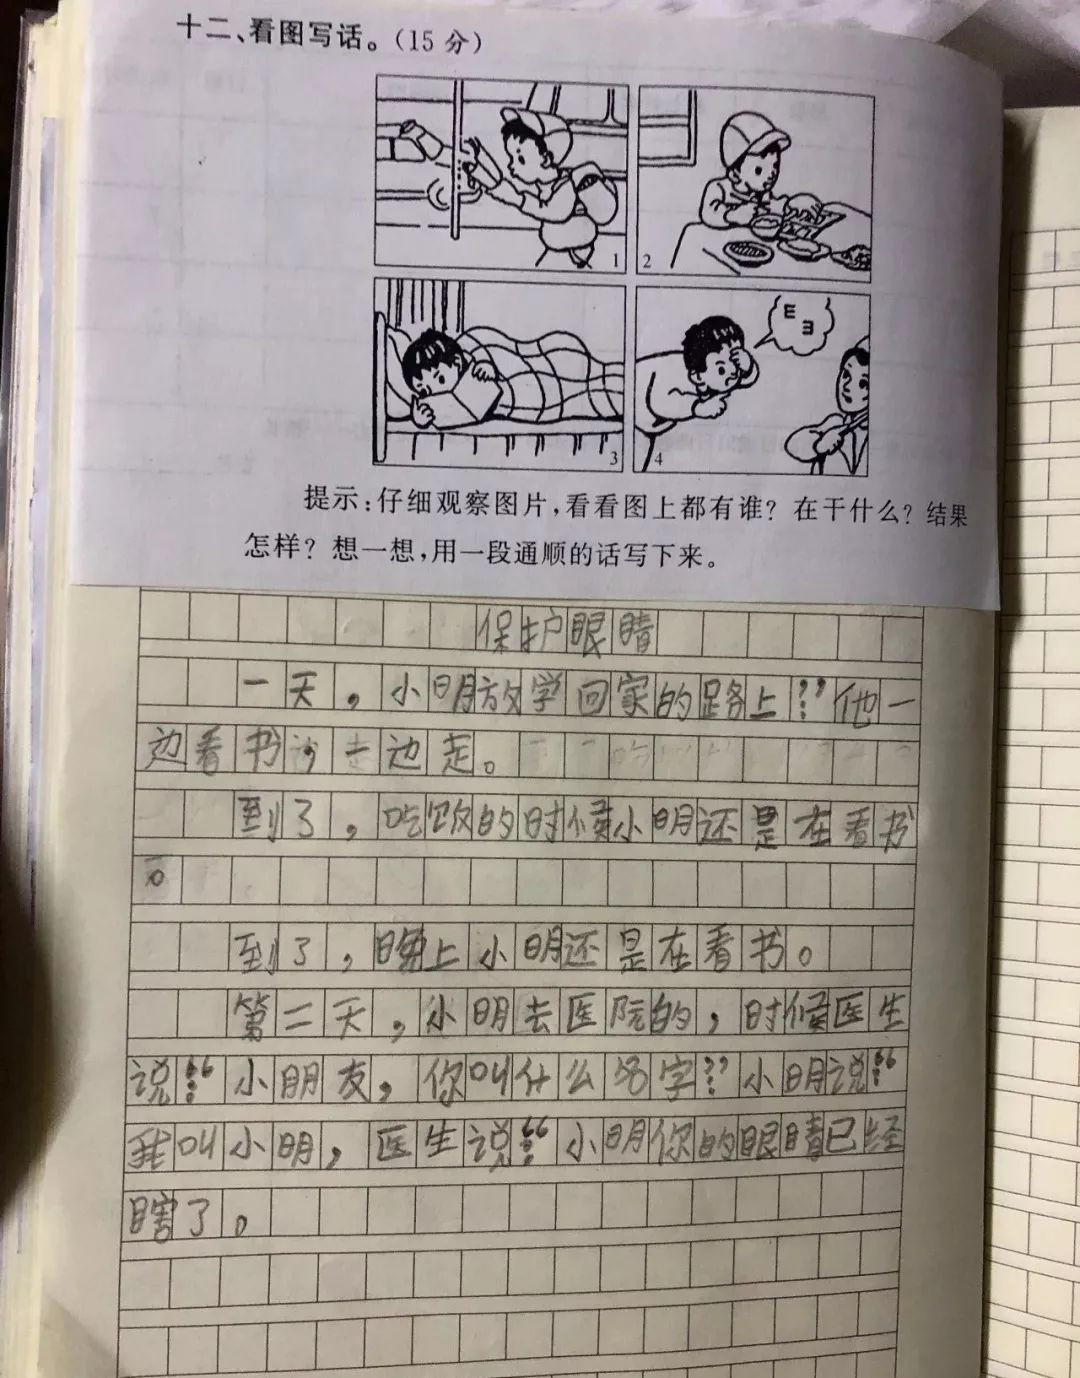 十二、看图写话。(15 分)
E
ヨ
1
2
3
4
提示:仔细观察图片,看看图上都有谁?在干什么?结果
怎样?想一想,用一段通顺的话写下来。
保护眼睛
一天,小明放学回家的路上:”他一
边看书,一边走。
到了,吃饭的时候小明还是在看书
。
到了,晚上小明还是在看书。
第二天,小明去医院的,时候医生
说:“小朋友,你叫什么名字?”小明说:“
我叫小明,医生说:“小明你的眼睛已经
瞎了。